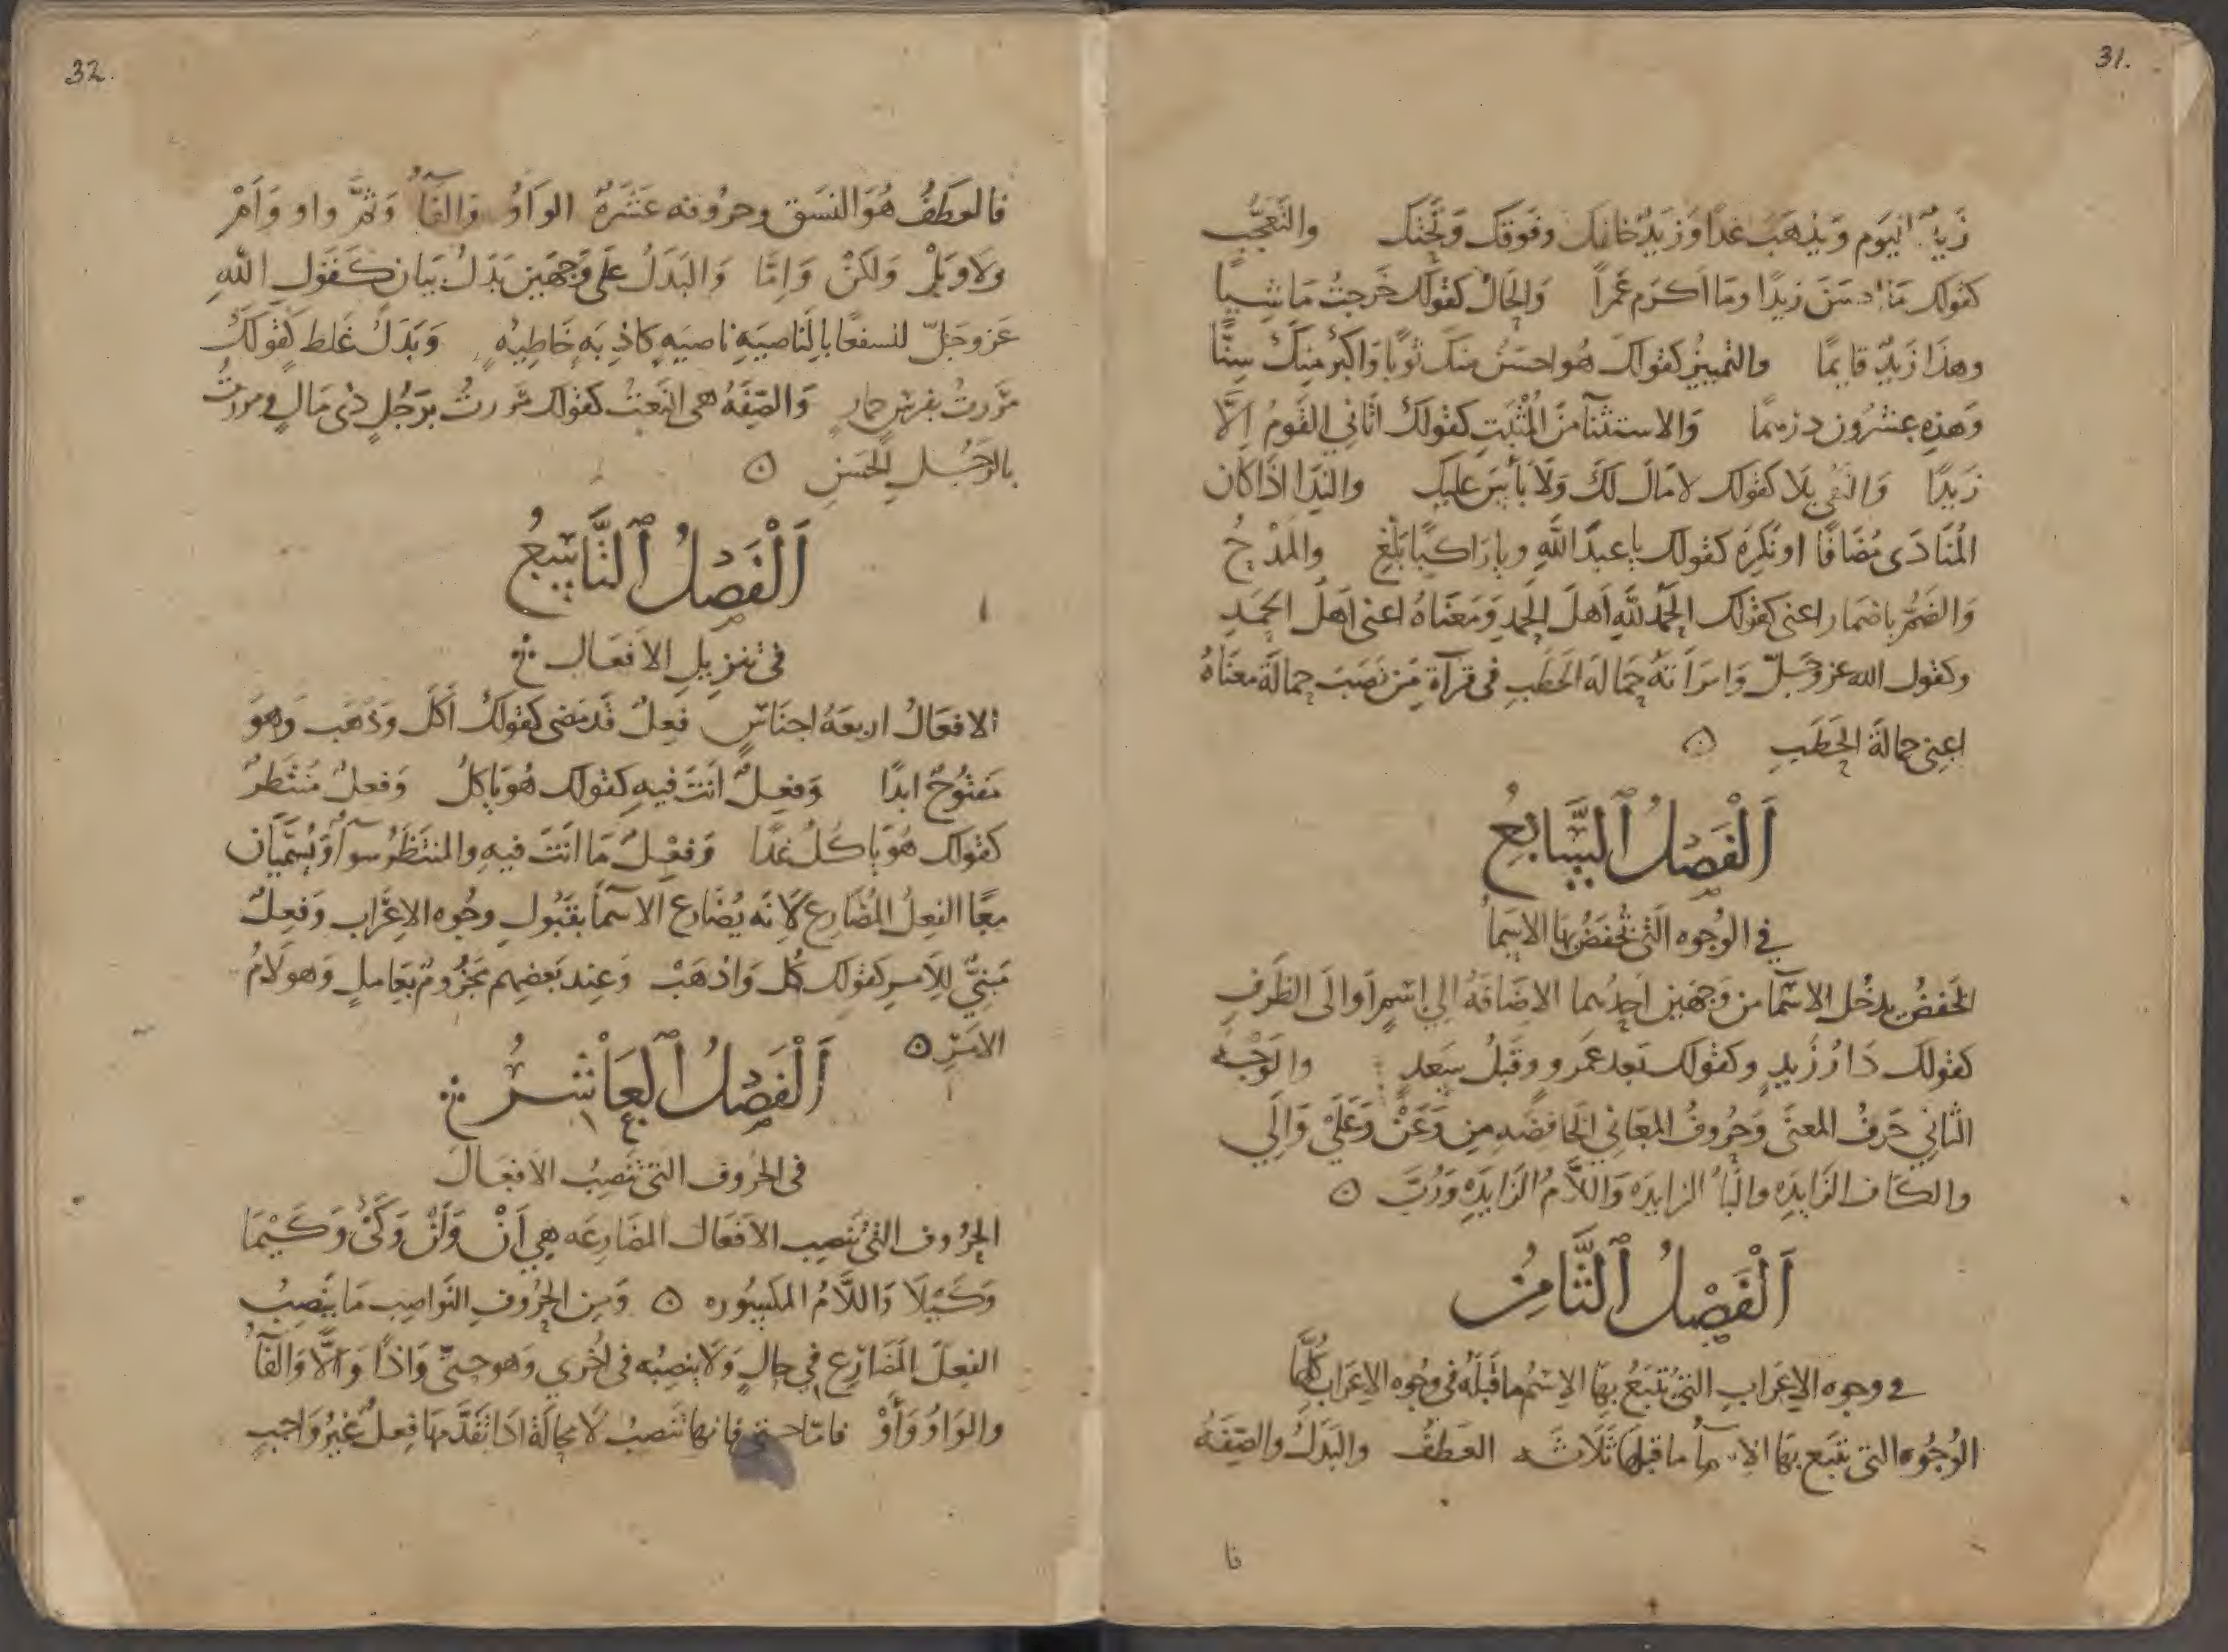 31.
زيدٌ اليوم ويذهب غدًا وزيدٌ خلفك وفوقك وتحتك والتعجّب
كقولك ما احسن زيدًا وما اكرم عَمراً والحال كقولك خرجتُ ماشيًا
وهذا زيدٌ قايمًا والتمييز كقولك هو احسنُ منك ثوبًا واكبرُ منك سِنًّا
وهذه عشرُون درهمًا والاستثنآ من المُثبَتِ كقولك اتاني القومُ اِلَّا
زيدًا والنفي بلا كقولك لا مَالَ لَكَ وَلَا بأسَ عليك والندا اذا كان
المُنادَى مُضافًا او نكِرةً كقولك يا عبدَ اللهِ ويا راكبًا بلّغ والمدحُ
والضمّ باضمار اعنى كقولك الحمدُ للهِ اَهلَ الحمدِ ومَعناهُ اعنى اهلَ الحمدِ
وكقول الله عز وجلّ وامرأتهُ حمالةَ الحَطَبِ فى قرآة مَن نَصَبَ حمالة معناهُ
اعِنى حمالةَ الحَطَبِ ۞
اَلْفَصْلُ ٱلسَّابِعُ
في الوُجوه الَّتى تُخفَضُ بها الاسمآ
الخفضُ يدخُل الاسمآ من وَجهَين احدُهما الاِضافةُ الى اِسمٍ اَو الى الظرفِ
كقولك دَارُ زَيدٍ وكقولك بعد عمرو وقبلُ سَعدٍ والوَجْهُ
الثاني حَرفُ المعنَى وحُروفُ المعَانِي الخافضه مِن وَعَنْ وَعَلَى وَاِلَى
والكاف الزايده والبآ الزايده وَاللّامُ الزايده وَرُبَّ ۞
اَلْفَصْلُ ٱلثَّامِنُ
في وجوه الاِعرابِ التى يُتبَعُ بها الاِسمُ ما قَبلَهُ فى وُجوه الاِعرَابِ كُلّها
الوُجُوه التى يتبَع بها الاسمآ ما قبلها ثَلَاثه العَطفُ والبَدَلُ والصِفَهُ
فا
32.
فالعَطفُ هُوَ النسَق وحروفه عَشَرَهٌ الوَاوُ وَالفَآ وَثُمَّ واو وَاَمْ
ولَا وبَلْ وَلكنْ وَاِمّا وَالبَدَلُ عَلى وَجهَين بَدَلُ بيَانٍ كَقَولِ اللهِ
عَز وجَلّ لنسفعًا بالناصيَهِ ناصيَهٍ كاذِبَهٍ خاطِيهٍ وَبَدَلُ غَلط كقولكَ
مَرَرتُ بفرسٍ حمارٍ وَالصِفَهُ هى النَعتُ كقولك مَررتُ برَجُلٍ ذى مَالٍ ومررتُ
بالرَجُلِ الحَسَنِ ۞
اَلْفَصْلُ ٱلتَّاسِعُ
فى تنزِيلِ الاَفعَال
الافعَالُ اربعَهُ اجنَاسٍ فِعلٌ قَد مَضى كقولكَ اَكَلَ وَذَهَبَ وَهوَ
مَفتُوحٌ ابدًا وَفِعلٌ اَنتَ فيهِ كقولك هُوَ يَاكلُ وَفعلٌ مُنتَظَرٌ
كقولك هُوَ يَاكُلُ غدًا وَفِعْلُ مَا انتَ فيهِ والمنتَظَرُ سوآٌ وَيُسَمّيَان
معًا الفِعلُ المُضَارع لاَنه يُضَارع الاسمآ بقبُولِ وجُوه الاِعرَاب وَفعِلٌ
مَبنِيٌّ لِلاَمرِ كقولك كُل وَاذهَبْ وَعِند بَعضِهم مَجزُومٌ بعَاملٍ وَهو لَامُ
الامَرِ ۞
اَلْفَصْلُ ٱلْعَاشِرُ
فى الحرُوف التى تنصِبُ الاَفعَالَ
الحرُوف التى تنصِب الاَفعَال المضَارِعَه هِي اَنْ وَلَنْ وَكَىْ وَكَيْمَا
وَكَيْلَا وَاللّامُ المكسُوره ۞ وَمِن الحُروفِ النَواصِبِ مَا يَنصِبُ
الفِعلَ المُضَارِع فِي حالٍ وَلَا ينصِبُه فى اُخرى وَهو حتّى وَاذًا وَاَلّا وَالفَآ
والوَاوُ وَاَوْ فامّا حتى فانها تنصِبُ لَا محالَةَ اذَا تَقَدّمَهَا فِعلٌ غَيرُ وَاجبٍ